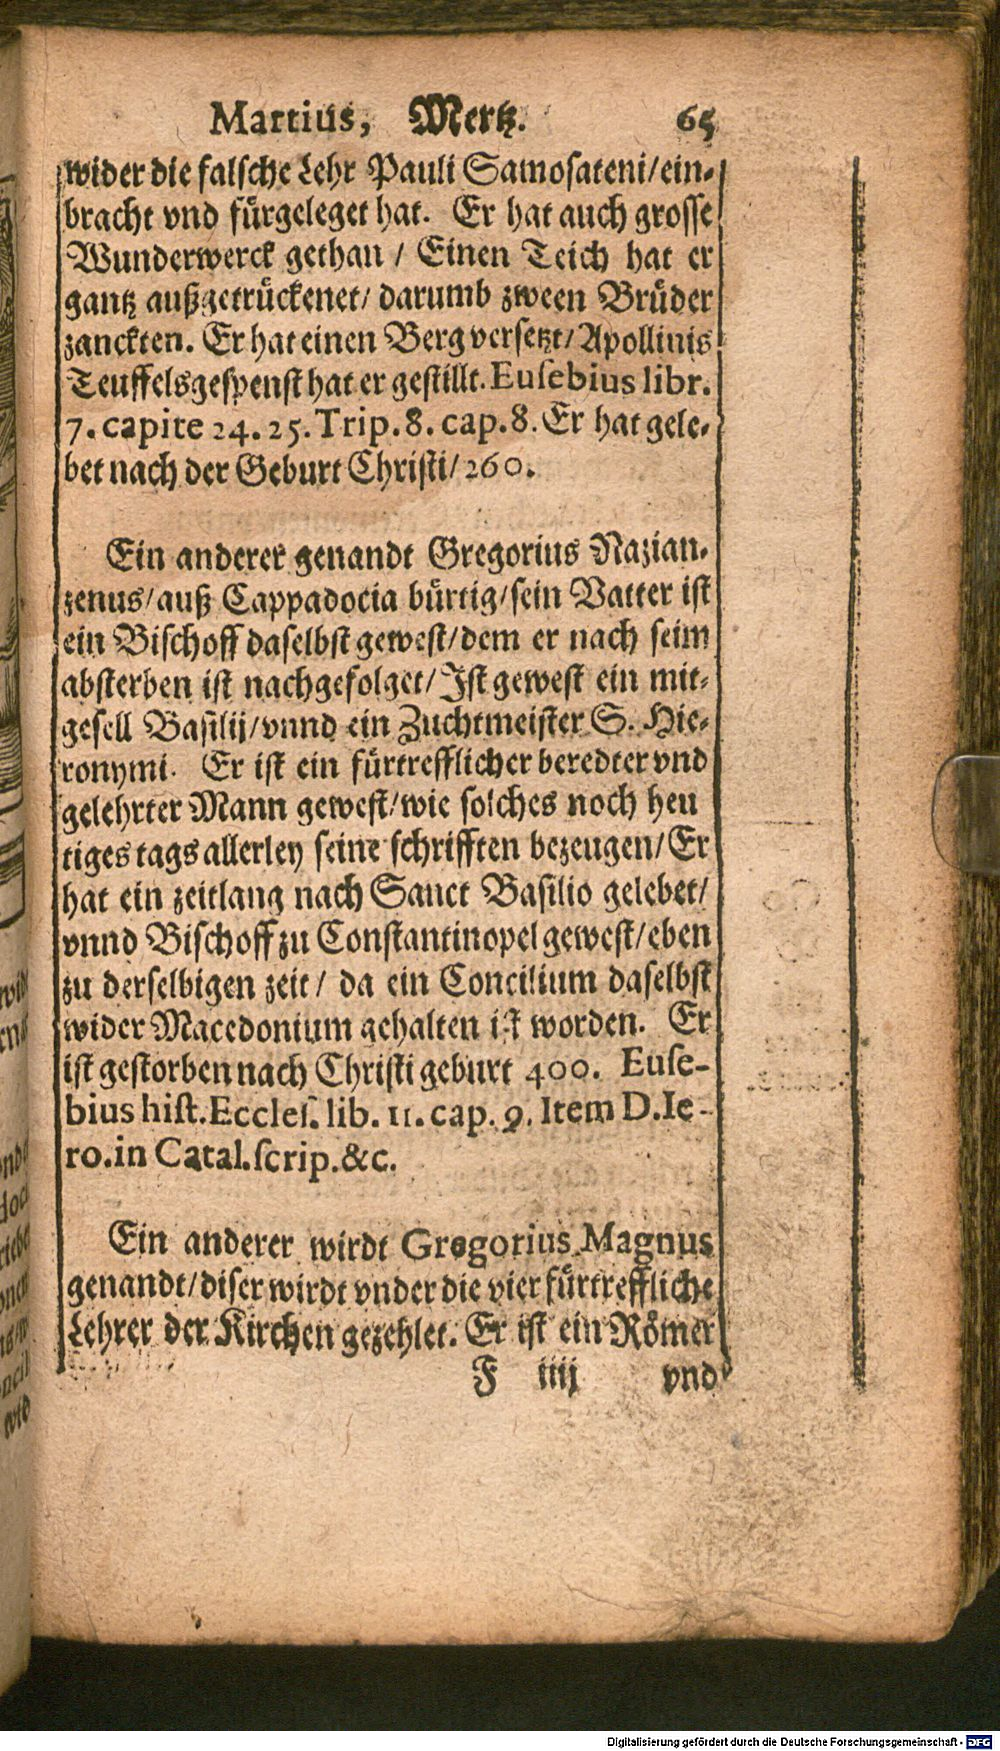 Martius, Mertz. 65
wider die falsche Lehr Pauli Samosateni/ein-
bracht vnd fürgeleget hat. Er hat auch grosse
Wunderwerck gethan / Einen Teich hat er
gantz außgetrückenet/ darumb zween Brüder
zanckten. Er hat einen Berg versetzt/ Apollinis
Teuffelsgespenst hat er gestillt. Eusebius libr.
7. capite 24. 25. Trip. 8. cap. 8. Er hat gele-
bet nach der Geburt Christi/ 260.
Ein anderer genandt Gregorius Nazian-
zenus/auß Cappadocia bürtig/sein Vatter ist
ein Bischoff daselbst gewest/dem er nach seim
absterben ist nachgefolget/ Ist gewest ein mit-
gesell Basilij/vnnd ein Zuchtmeister S. Hie-
ronymi. Er ist ein fürtrefflicher beredter vnd
gelehrter Mann gewest/wie solches noch heu
tiges tags allerley seine schrifften bezeugen/ Er
hat ein zeitlang nach Sanct Basilio gelebet/
vnnd Bischoff zu Constantinopel gewest/eben
zu derselbigen zeit / da ein Concilium daselbst
wider Macedonium gehalten ist worden. Er
ist gestorben nach Christi geburt 400. Euse-
bius hist. Eccles. lib. 11. cap. 9. Item D. Ie-
ro. in Catal. scrip. &c.
Ein anderer wirdt Gregorius Magnus
genandt/diser wirdt vnder die vier fürtreffliche
Lehrer der Kirchen gezehlet. Er ist ein Römer
F iiij vnd
Digitalisierung gefördert durch die Deutsche Forschungsgemeinschaft - DFG